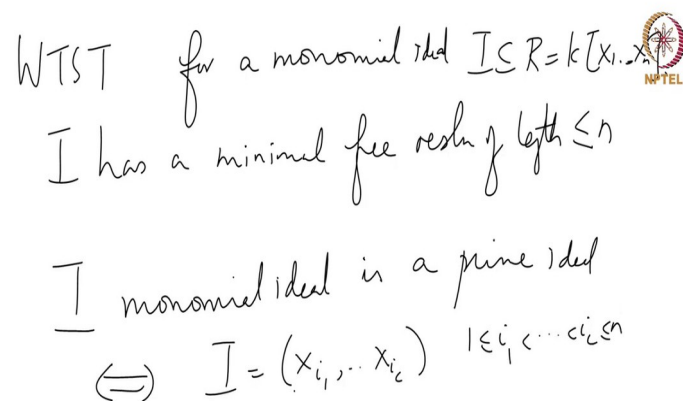 WTST for a monomial ideal I ⊆ R = k[x₁...xₙ]
NPTEL
I has a minimal free resln of length ≤ n
I monomial ideal is a prime ideal
⟺ I = (x_{i₁},.. x_{i_c}) 1 ≤ i₁ < ... < i_c ≤ n